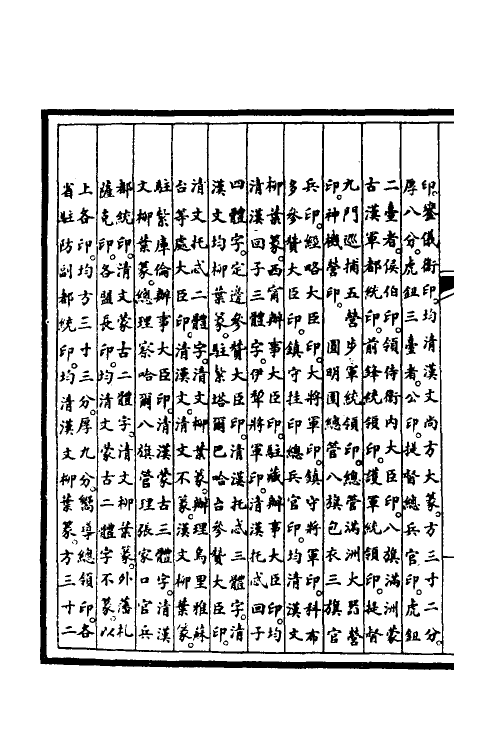 印鑾儀衛印均清漢文尚方大篆方三寸二分
厚八分虎鈕三臺者公印提督總兵官印虎鈕
二臺者侯伯印領侍衛內大臣印八旗滿洲蒙
古漢軍都統印前鋒統領印護軍統領印提督
九門巡捕五營步軍統領印總管滿洲火器營
印神機營印圓明園總管八旗包衣三旗官
兵印經略大臣印大將軍印鎮守將軍印科布
多參贊大臣印鎮守挂印總兵官印均清漢文
柳葉篆西甯辦事大臣印駐藏辦事大臣印均
清漢回子三體字伊犂將軍印清漢托忒回子
四體字定邊參贊大臣印清漢托忒三體字清
漢文均柳葉篆塔爾巴哈台參贊大臣印
清文托忒二體字清文柳葉篆辦理烏里雅蘇
台等處大臣印清漢文清文不篆漢文柳葉篆
駐紮庫倫辦事大臣印清漢蒙古三體字清漢
文柳葉篆總理察哈爾八旗管理張家口官兵
都統印清文蒙古二體字清文柳葉篆外藩札
薩克印各盟長印均清文蒙古二體字不篆以
上各印均方三寸三分厚九分嚮導總領印各
省駐防副都統印均清漢文柳葉篆方三寸二